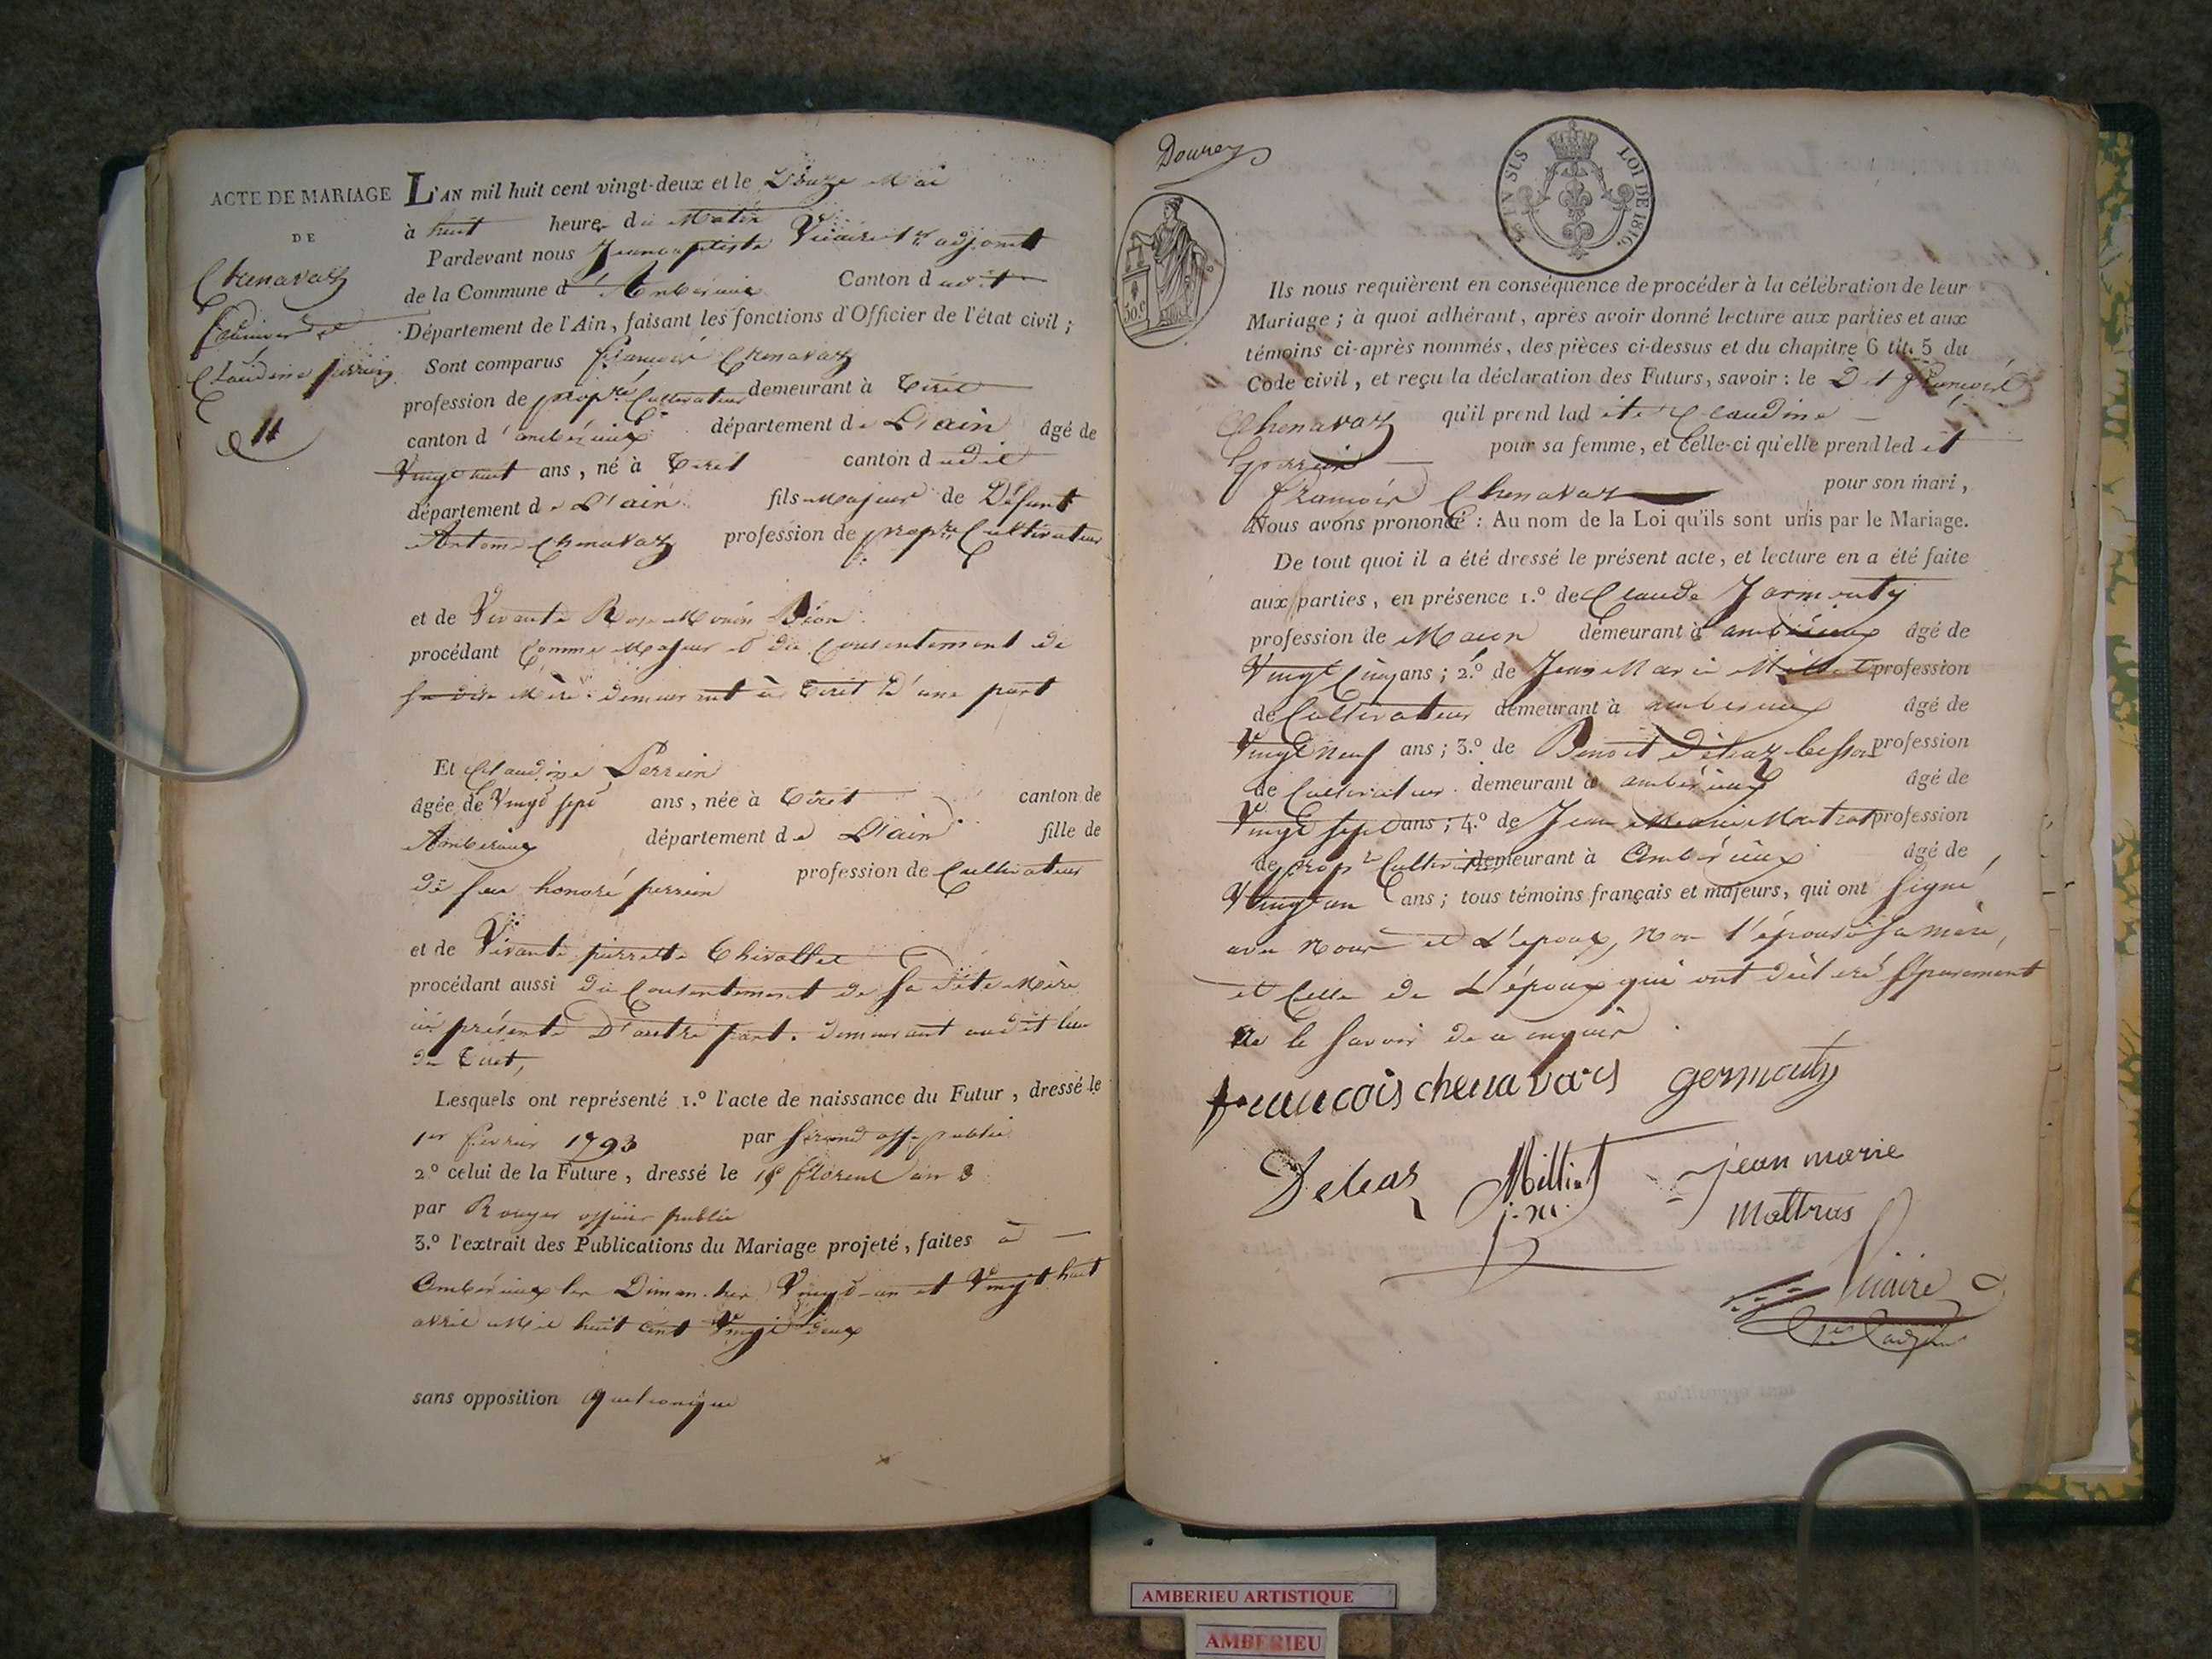 ACTE DE MARIAGE
DE
Chenavaz
Claudine perrein
11
L'AN mil huit cent vingt-deux et le Douze Mai
à huit heures du Matin
Pardevant nous Jean Baptiste Vicaire 1er adjoint
de la Commune d'Amberieux Canton dudit
Département de l'Ain, faisant les fonctions d'Officier de l'état civil ;
Sont comparus françois Chenavaz
profession de propre Cultivateur demeurant à Tiret
canton d'amberieux département de L'ain âgé de
Vingt huit ans, né à Tiret canton dudit
département de L'ain fils Majeur de Défunt
Antoine Chenavaz profession de propre Cultivateur
et de Vivante Rose Bion
procédant Comme Majeur et du Consentement de
sa dite Mère demeurant à Tiret D'une part
Et Claudine Perrein
âgée de Vingt sept ans, née à Tiret canton de
Amberieux département de L'ain fille de
de feu honoré perrein profession de Cultivateur
et de Vivante pierrette Chivallet
procédant aussi du Consentement de sa dite Mère
ici présente D'autre part. demeurant audit lieu
de Tiret,
Lesquels ont représenté 1.º l'acte de naissance du Futur, dressé le
1er fevrier 1793 par off. public
2º celui de la Future, dressé le floreal an 3
par Rouyer officier public
3.º l'extrait des Publications du Mariage projeté, faites à
Ambérieux les Dimanches Vingt-un et Vingt huit
avril Mil huit cent Vingt deux
sans opposition quelconque
Douze
TIMBRE LOI DE 1816.
50.c
Ils nous requièrent en conséquence de procéder à la célébration de leur
Mariage ; à quoi adhérant, après avoir donné lecture aux parties et aux
témoins ci-après nommés, des pièces ci-dessus et du chapitre 6 tit. 5 du
Code civil, et reçu la déclaration des Futurs, savoir : le Dt françois
Chenavaz qu'il prend ladite Claudine
perrein pour sa femme, et Celle-ci qu'elle prend ledit
françois Chenavaz pour son mari,
Nous avons prononcé : Au nom de la Loi qu'ils sont unis par le Mariage.
De tout quoi il a été dressé le présent acte, et lecture en a été faite
aux parties, en présence 1.º de Claude Jarmouty
profession de Macon demeurant à ambérieux âgé de
Vingt Cinq ans ; 2.º de Jean Marie Milliet profession
de Cultivateur demeurant à amberieux âgé de
Vingt Neuf ans ; 3.º de Benoit Deleaz besson profession
de Cultivateur demeurant à ambérieux âgé de
Vingt sept ans ; 4.º de Jean Marie Matras profession
de propre Cultivateur demeurant à Ambérieux âgé de
Vingt un ans ; tous témoins français et majeurs, qui ont signé
avec Nous et L'epoux, Non l'épouse sa mère,
et Celle de L'époux qui ont déclaré séparement
Ne le savoir de ce enquis
francois chenavars germouty
Deleas Milliet j.m. jean marie
mattras
Vicaire
1er adjt
AMBERIEU ARTISTIQUE
AMBERIEU